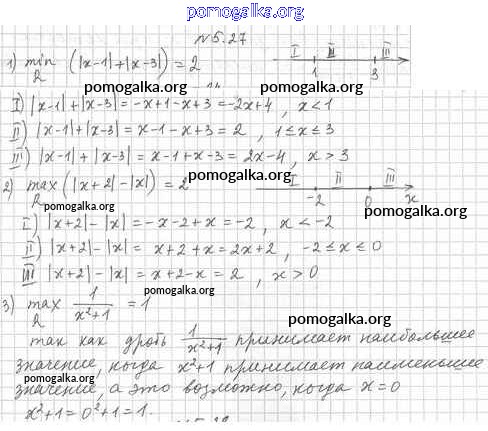 pomogalka.org
N 5.27
1) min (|x-1|+|x-3|) = 2 I II III
R 1 3
pomogalka.org pomogalka.org
I) |x-1|+|x-3| = -x+1-x+3 = -2x+4, x<1
II) |x-1|+|x-3| = x-1-x+3 = 2, 1≤x≤3
III) |x-1|+|x-3| = x-1+x-3 = 2x-4, x>3
2) max (|x+2|-|x|) = 2 pomogalka.org I II III
R -2 0 x
pomogalka.org pomogalka.org
I) |x+2|-|x| = -x-2+x = -2, x<-2
II) |x+2|-|x| = x+2+x = 2x+2, -2≤x≤0
III |x+2|-|x| = x+2-x = 2, x>0
pomogalka.org
3) max 1/(x²+1) = 1
R
pomogalka.org
так как дробь 1/(x²+1) принимает наибольшее
значение, когда x²+1 принимает наименьшее
pomogalka.org
значение, а это возможно, когда x=0
x²+1=0²+1=1.
pomogalka.org